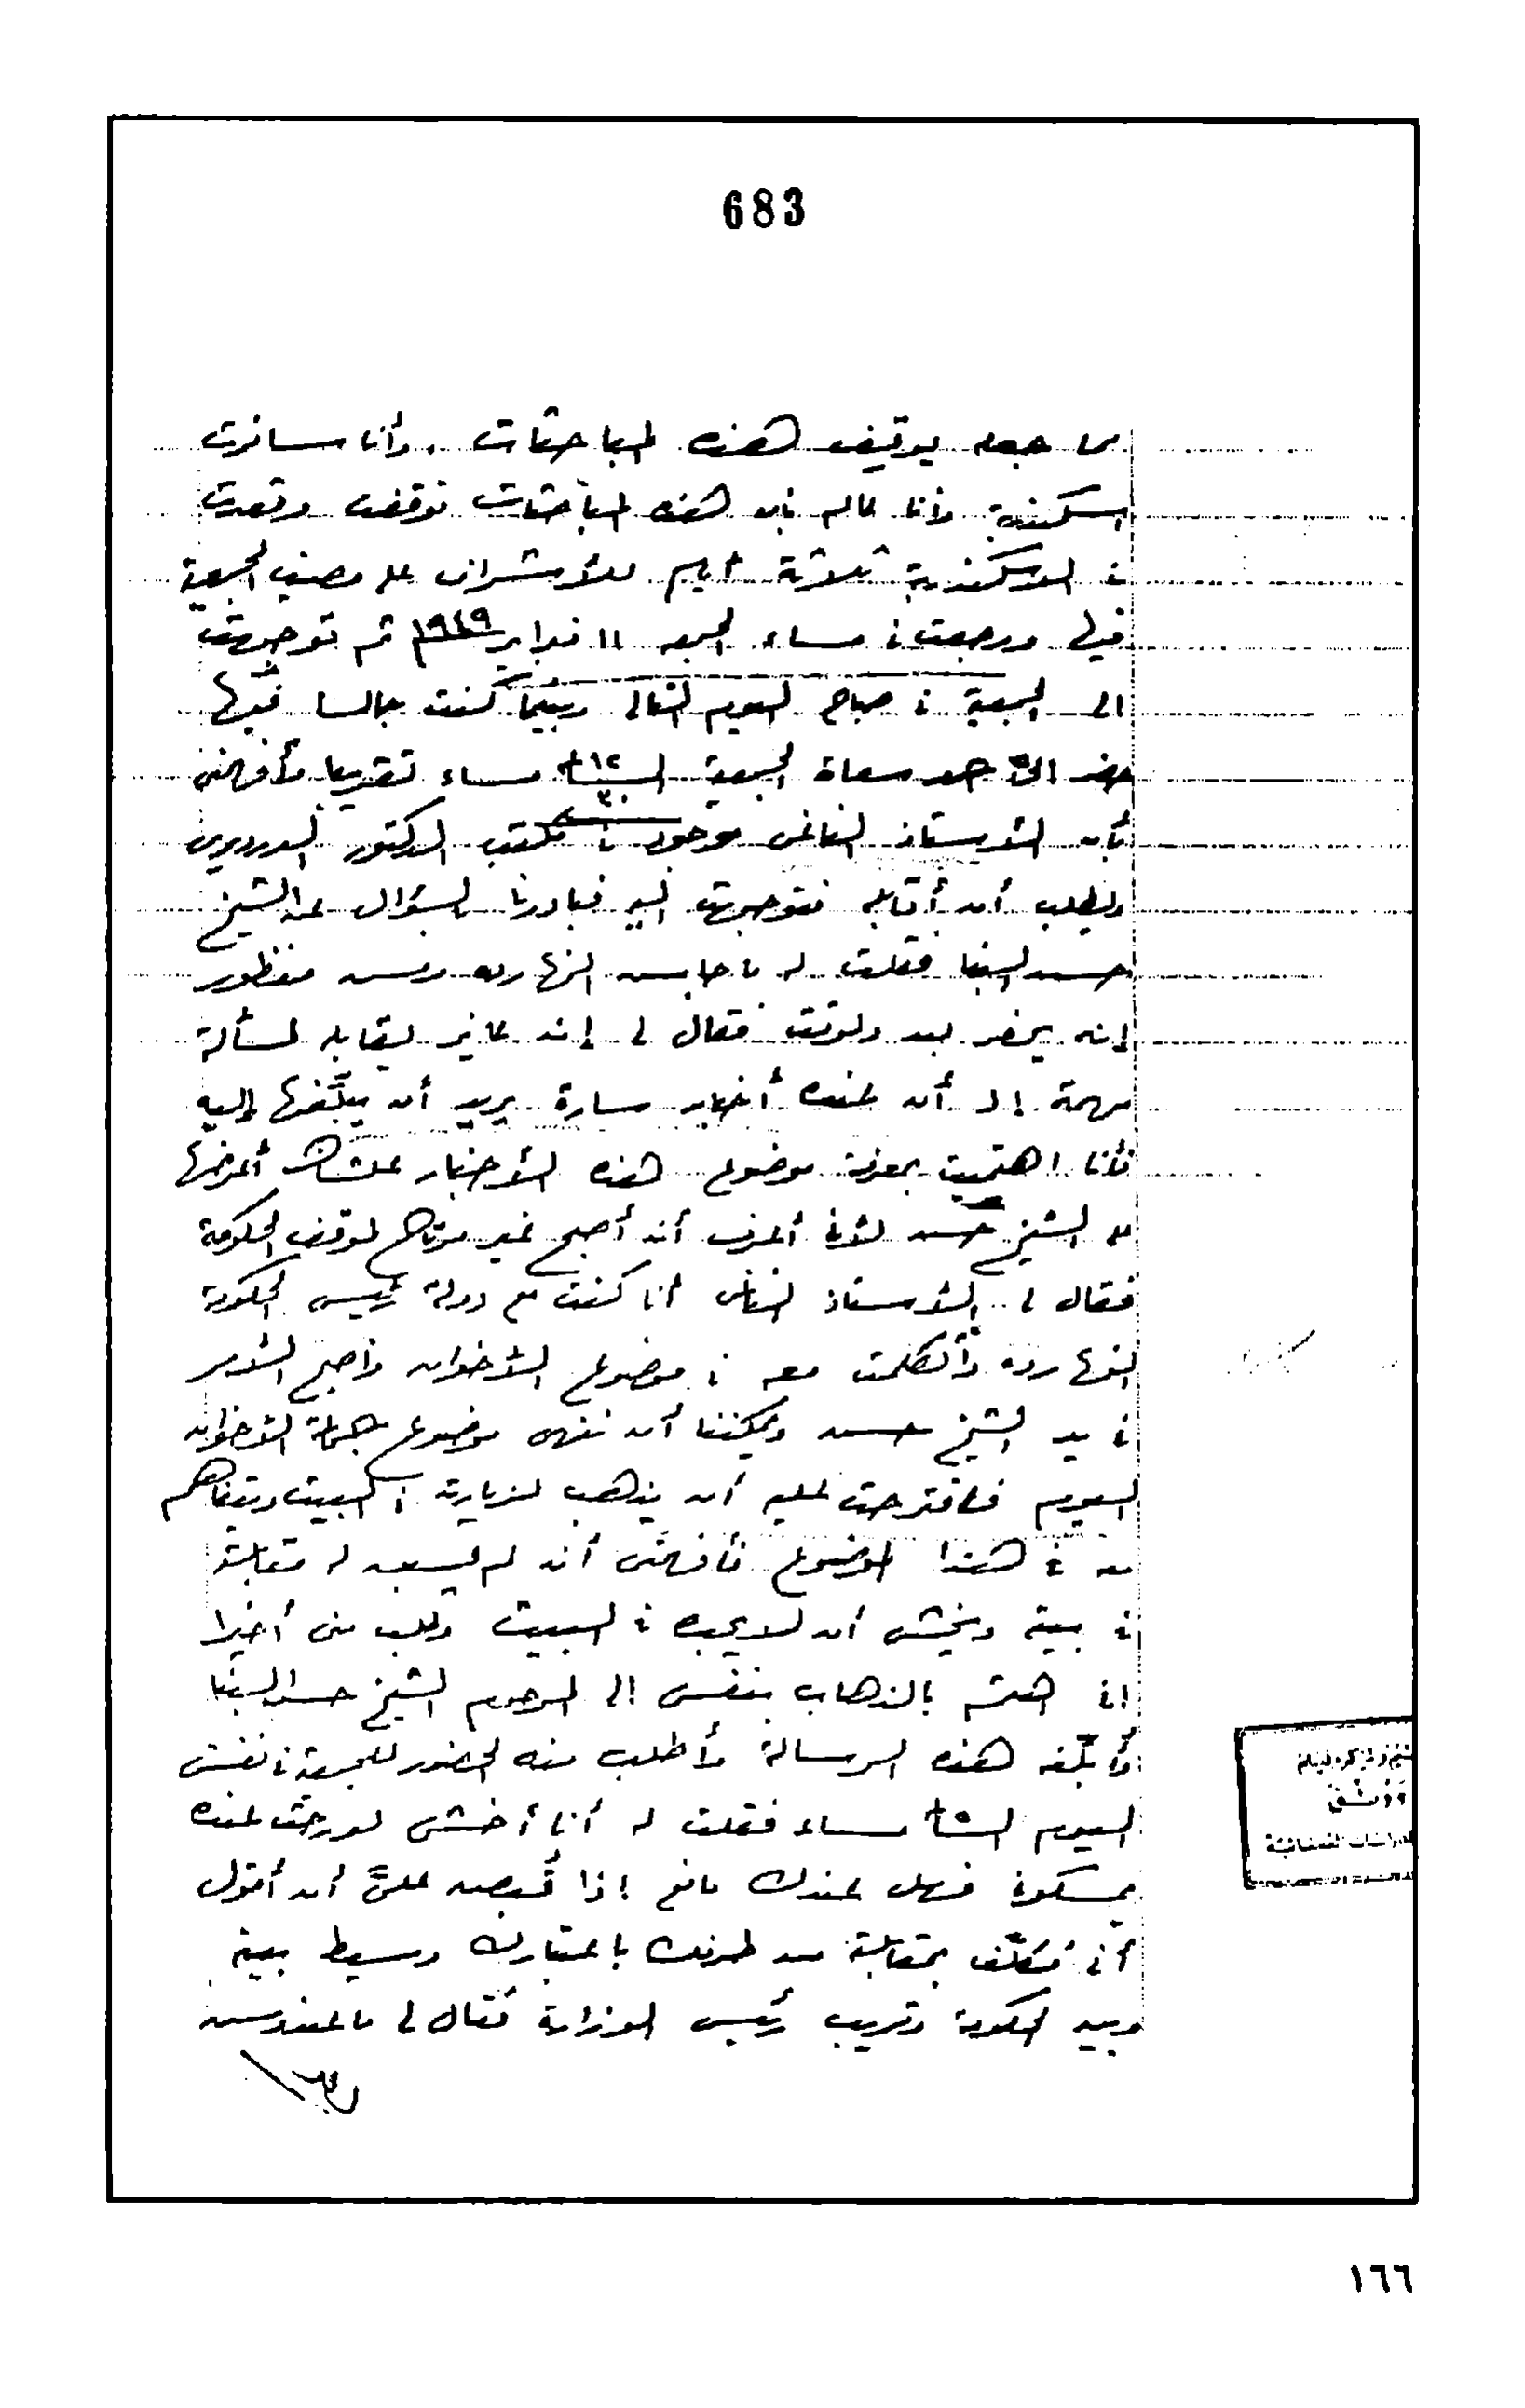 683
مما جعله يوقف هذه المباحثات . وأنا سافرت
اسكندرية وأنا عالم بأن هذه المباحثات توقفت وقعدت
في الاسكندرية ثلاثة أيام للأشراف على مصيف الجمعية
فيها ورجعت في مساء الجمعه ١١ فبراير ١٩٤٩ ثم توجهت
الى الجمعية في صباح اليوم التالى وبينما كنت جالسا فيها
حضر الىّ أحد سعاة الجمعية الساعة ١٢ ٣٠ مساء تقريبا وأفهمنى
بأن الأستاذ الناغى موجود في مكتب الدكتور الدرديرى
ويطلب أن أقابله فتوجهت اليه فبادرنا بالسؤال عن الشيخ
حسن البنا فقلت له ما جاش النهارده ومش منظور
إنه يحضر لحد دلوقت فقال لى إنه عايز يقابله لمسألة
مهمة إذ أن عنده أخبار سارة يريد أن يبلّغها إليه
فأنا اهتميت بمعرفة موضوع هذه الأخبار علشان أعرضها
على الشيخ حسن لأنى أعرف أنه أصبح غير مرتاح لموقف الحكومة
فقال لى الأستاذ الناغى أنا كنت مع دولة رئيس الحكومة
النهارده وأتكلمت معه في موضوع الأخوان وأصبح الأمر
في يد الشيخ حسن ويمكننا أن ننهى موضوع جماعة الأخوان
اليوم فاقترحت عليه أن يذهب لزيارته في البيت ويتفاهم
معه في هذا الموضوع فأفهمنى أنه لم يسبق له مقابلته
في بيته ويخشى أن لا يجده في البيت وطلب منى أخيرا
انى اهتم بالذهاب بنفسى الى المرحوم الشيخ حسن البنا
وأبلّغه هذه الرسالة وأطلب منه الحضور للجمعية في نفس
اليوم الساعة ٥ مساء فقلت له أنا أخشى لو رحت عنده
يمسكونى فهل عندك مانع إذا قُبض علىَّ أن أقول
أنى مُكلّف بمقابلته من طرفك باعتبارك وسيط بينه
وبين الحكومة وقريب رئيس الوزارة فقال لى ما عنديش
١٦٦